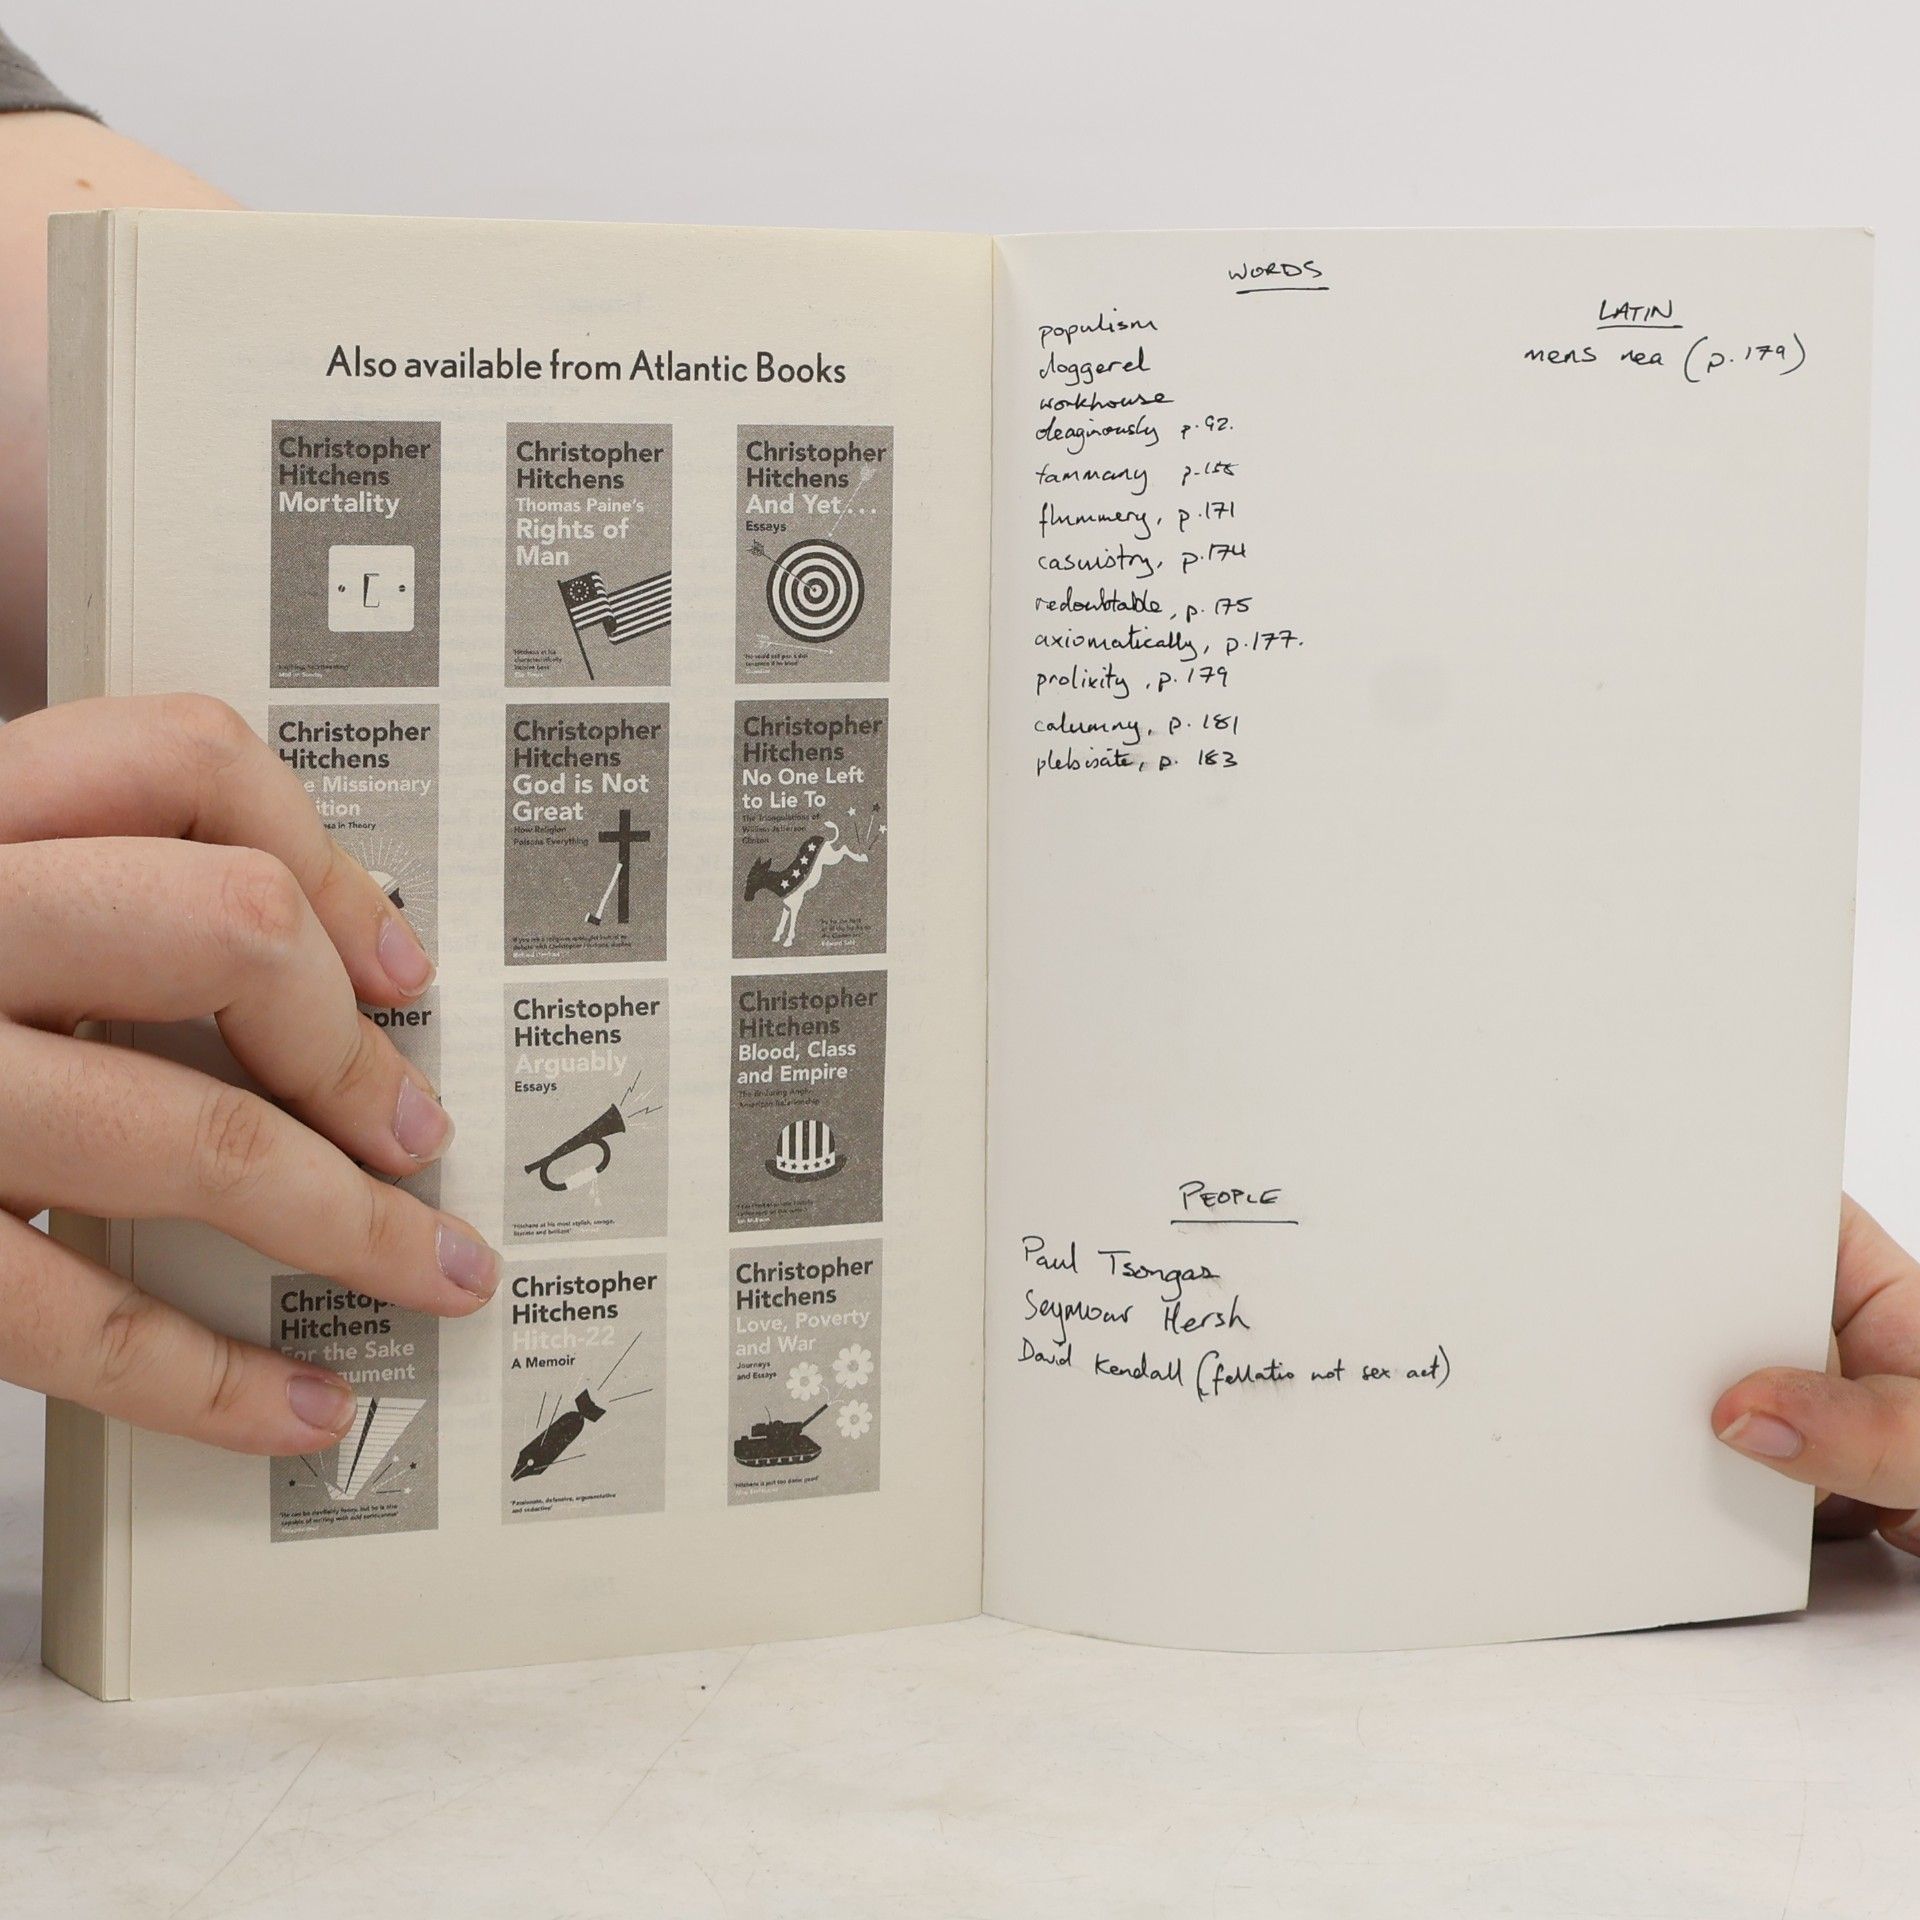 Also available from Atlantic Books
Christopher
Hitchens
Mortality
Christopher
Hitchens
Thomas Paine's
Rights of
Man
Christopher
Hitchens
And Yet...
Essays
Christopher
Hitchens
e Missionary
ition
in Theory
Christopher
Hitchens
God is Not
Great
How Religion
Poisons Everything
Christopher
Hitchens
No One Left
to Lie To
The Triangulations of
William Jefferson
Clinton
Edward Said
opher
Christopher
Hitchens
Arguably
Essays
'Hitchens at his most stylish, savage,
literate and brilliant'
Christopher
Hitchens
Blood, Class
and Empire
The Enduring Anglo-
American Relationship
Ian McEwan
Christop
Hitchens
For the Sake
gument
Christopher
Hitchens
Hitch-22
A Memoir
'Passionate, defensive, argumentative
and seductive'
Christopher
Hitchens
Love, Poverty
and War
Journeys
and Essays
'Hitchens is just too damn good'
WORDS
populism
doggerel
workhouse
oleaginously p.92.
tammany
flummery, p.171
casuistry, p.174
redoubtable, p.175
axiomatically, p.177.
prolixity, p.179
calumny, p.181
plebiscite, p. 183
LATIN
mens rea (p.179)
PEOPLE
Paul Tsongas
Seymour Hersh
David Kendall (fellatio not sex act)